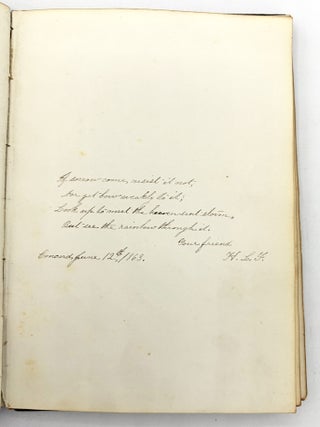 If sorrow come, resist it not,
Nor yet bow weakly to it;
Look up to meet the heaven sent storm,
And see the rainbow through it.
Your friend
June 12th/163. H. L. F.